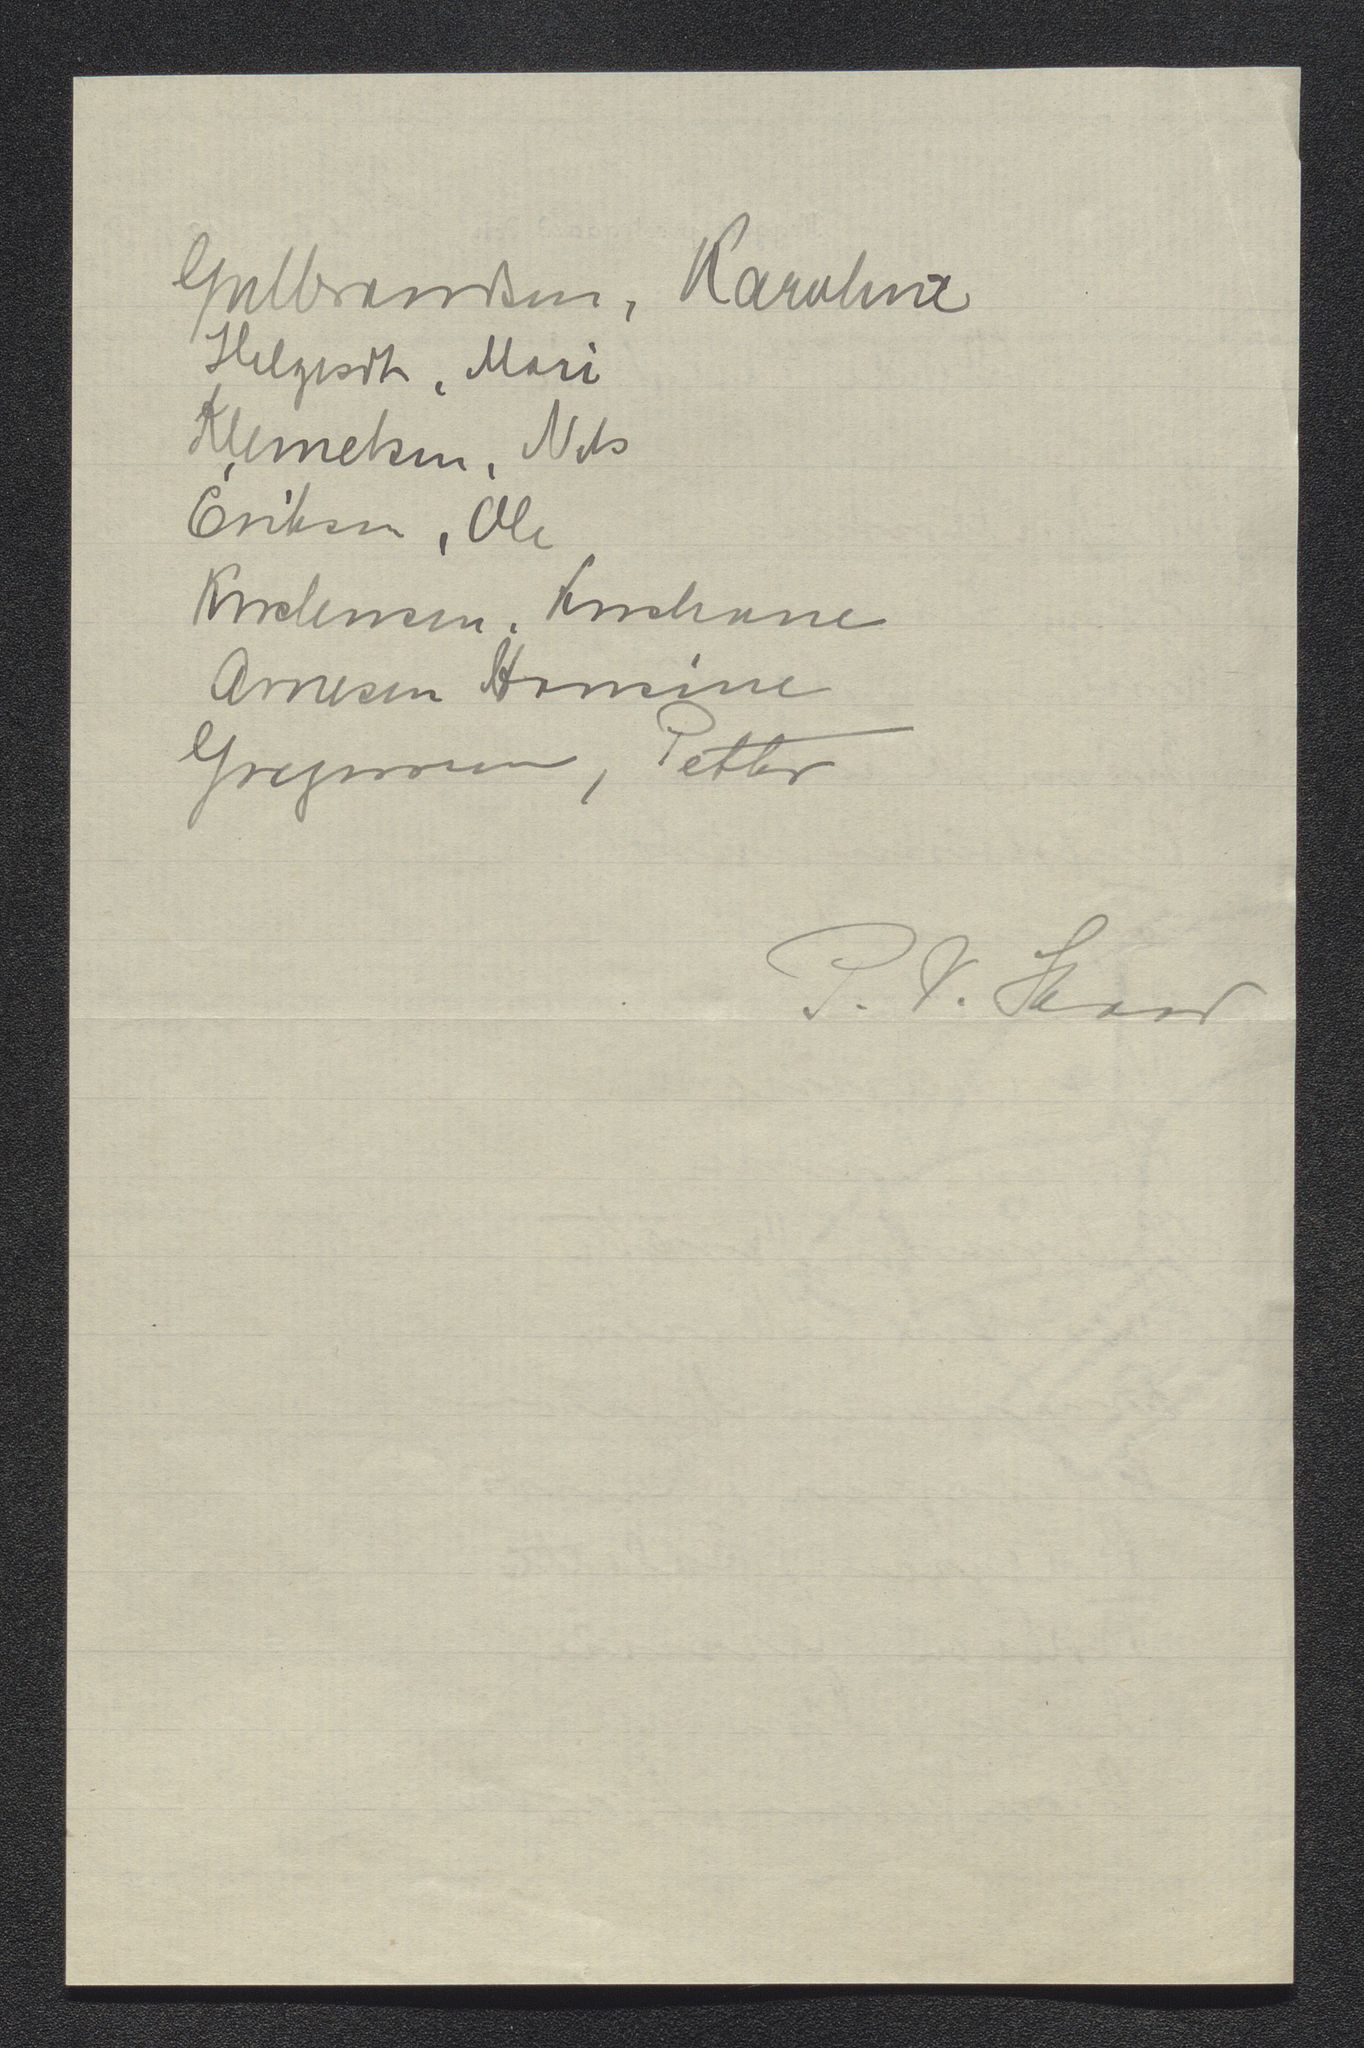 Gulbrandsen, Karoline
Helgesdtr, Mari
Klemetsen, Nils
Eriksen, Ole
Kristensen, Kristiane
Arnesen Hansine
Gregersen, Petter
P. V.